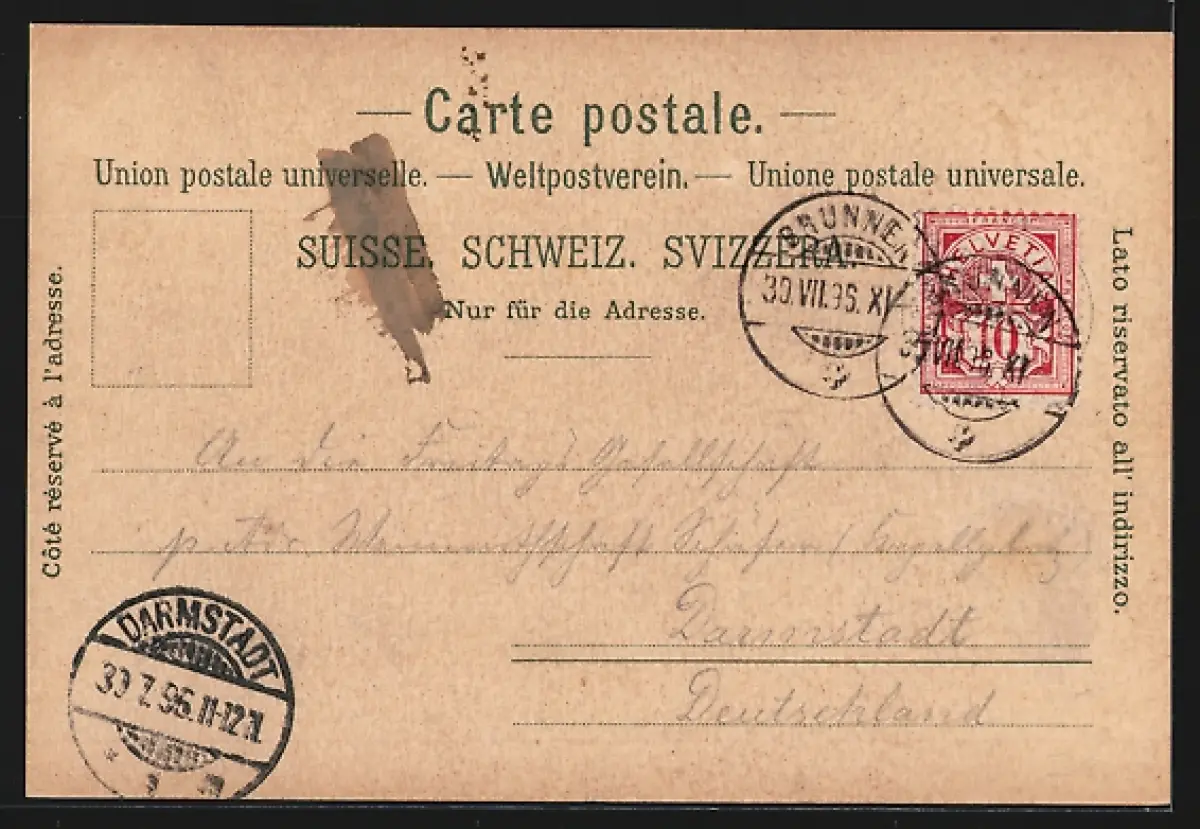 Carte postale.
Union postale universelle. — Weltpostverein. — Unione postale universale.
SUISSE. SCHWEIZ. SVIZZERA.
Nur für die Adresse.
Côté réservé à l'adresse.
Lato riservato all' indirizzo.
BRUNNEN
30.VII.96. XI
FRANCO
HELVETIA
10
BRUNNEN
VII.96. XI
An die Gesellschaft
Darmstadt
Deutschland
DARMSTADT
30.7.96.11-12N.